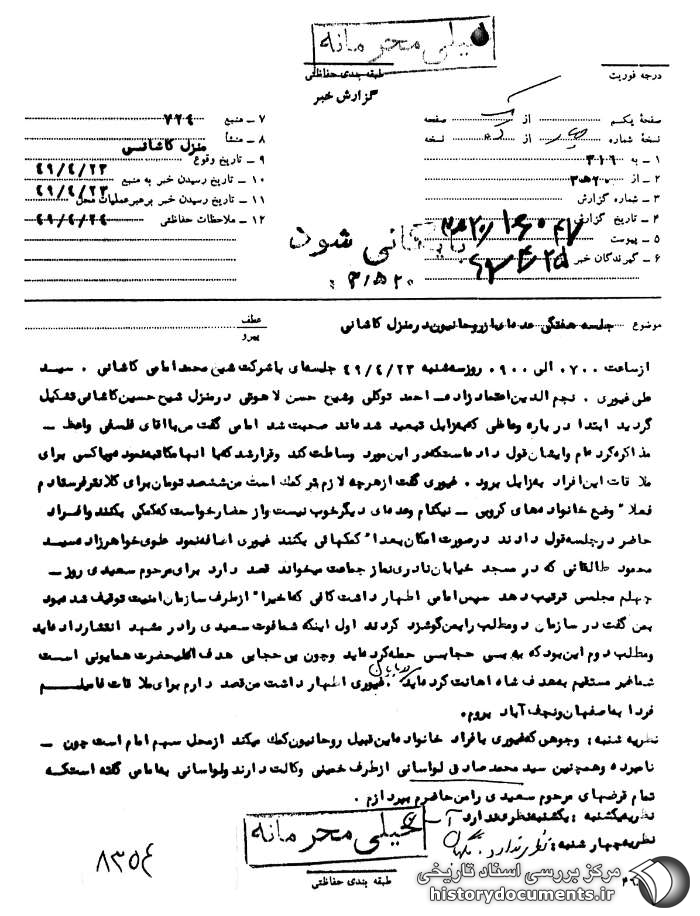 خیلی محرمانه
درجه فوریت
طبقه بندی حفاظتی
گزارش خبر
صفحه یکم از صفحه
نسخه شماره از نسخه
۱ – به ۳۱۶
۲ – از ۲۰ﻫ۳
۳ – شماره گزارش
۴ – تاریخ گزارش
۵ – پیوست
۶ – گیرندگان خبر
۷ – منبع ۷۲۴
۸ – منشأ منزل کاشانی
۹ – تاریخ وقوع ۴۹/۴/۲۳
۱۰ – تاریخ رسیدن خبر به منبع ۴۹/۴/۲۳
۱۱ – تاریخ رسیدن خبر برهبر عملیات محل
۱۲ – ملاحظات حفاظتی ۴۹/۴/۲۴
بایگانی شود
موضوع جلسه هفتگی عده‌ای از روحانیون در منزل کاشانی
عطف
پیرو
از ساعت ۰۷۰۰ الی ۰۹۰۰ روز سه‌شنبه ۴۹/۴/۲۳ جلسه‌ای با شرکت شیخ محمد امامی کاشانی . سید
علی غیوری . نجم الدین اعتماد زاده – احمد توکلی و شیخ حسن لاهوتی در منزل شیخ حسین کاشانی تشکیل
گردید ابتدا در باره وعاظی که بزابل تبعید شده‌اند صحبت شد امامی گفت من با آقای فلسفی واعظ –
مذاکره کرده‌ام وایشان قول داده است که در این مورد وساطت کند و قرار شد که با آنها مکاتبه نموده و یا کسی برای
ملاقات این افراد به زابل برود . غیوری گفت از هر چه لازم تر کمک است من ششصد تومان برای کلانتر فرستادم
فعلاً وضع خانواده‌های کروبی – نیکنام وعده‌ای دیگر خوب نیست و از حضار خواست که کمکی بکنند و افراد
حاضر در جلسه قول دادند در صورت امکان بعداً کمکهائی بکنند غیوری اضافه نمود علوی خواهرزاده سید
محمود طالقانی که در مسجد خیابان نادری نماز جماعت میخواند قصد دارد برای مرحوم سعیدی روز –
چهلم مجلسی ترتیب دهد سپس امامی اظهار داشت کافی که اخیراً از طرف سازمان امنیت توقیف شده بود
بمن گفت در سازمان دو مطلب را بمن گوشزد کردند اول اینکه شما فوت سعیدی را در مشهد انتشار داده‌اید
و مطلب دوم این بود که به بی حجابی حمله کرده‌اید و چون بی حجابی هدف اعلیحضرت همایونی است
شما غیر مستقیم به هدف شاه اهانت کرده‌اید . غیوری اظهار داشت من قصد دارم برای ملاقات فامیلم
فردا به اصفهان و نجف آباد بروم.
نظریه شنبه : وجوهی که غیوری بافراد خانواده این قبیل روحانیون کمک میکند از محل سهم امام است چون –
نامبرده وهمچنین سید محمد صادق لواسانی از طرف خمینی وکالت دارند و لواسانی به امامی گفته است که
تمام قرضهای مرحوم سعیدی را من حاضرم بپردازم .
نظریه یکشنبه : یکشنبه نظری ندارد
نظریه چهار شنبه : نظری ندارد .
خیلی محرمانه
طبقه بندی حفاظتی
۸۳۵۴
مرکز بررسی اسناد تاریخی
historydocuments.ir